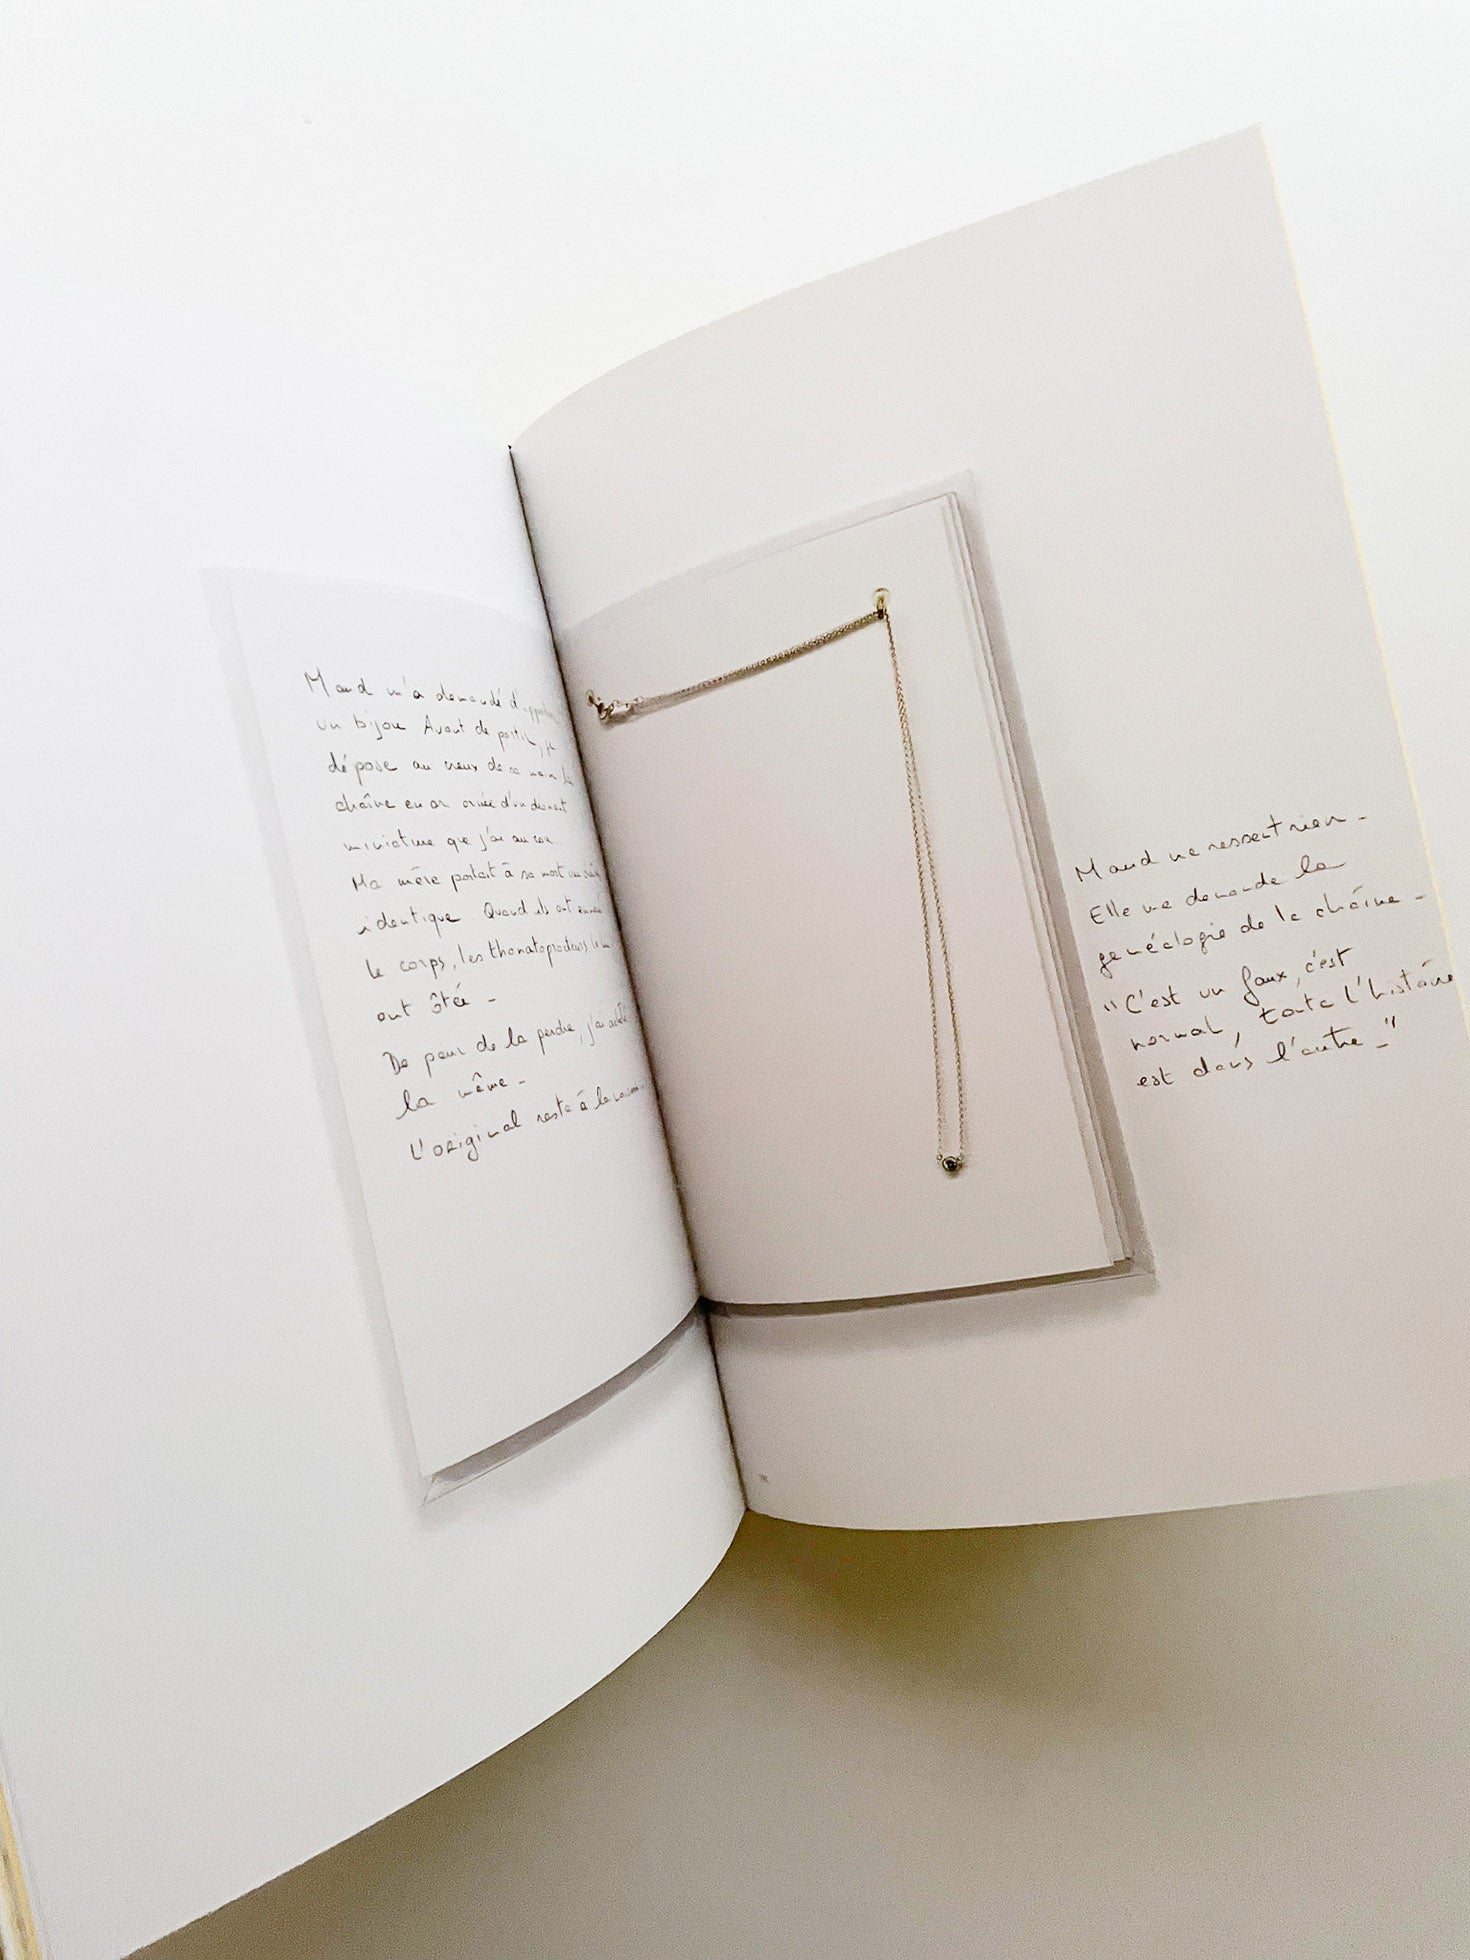 Maud m'a demandé d'apporter
un bijou. Avant de partir, je
dépose au creux de sa main la
chaîne en or ornée d'un diamant
miniature que j'ai au cou.
Ma mère portait à sa mort une chaîne
identique. Quand ils ont
le corps, les thanatopracteurs la lui
ont ôtée -
De peur de la perdre, j'ai acheté
la même -
L'original reste à la maison.
Maud ne ressent rien -
Elle me demande la
généalogie de la chaîne -
"C'est un faux, c'est
normal, toute l'histoire
est dans l'autre -"